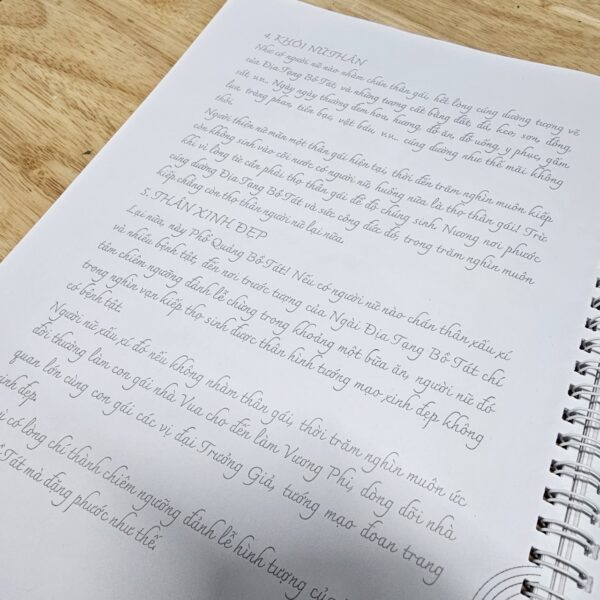 4. KHỎI NỮ THÂN
Như có người nữ nào nhàm chán thân gái, hết lòng cúng dường tượng vẽ
của Địa Tạng Bồ Tát và những tượng cất bằng đất, đá, keo, sơn, đồng,
sắt, v.v... Ngày ngày thường đem hoa, hương, đồ ăn, đồ uống, y phục, gấm
lụa, tràng phan, tiền bạc, vật báu v.v... cúng dường như thế mãi không
thôi.
Người thiện nữ mãn một thân gái hiện tại, thời đến trăm nghìn muôn kiếp
còn không sinh vào cõi nước có người nữ, huống nữa là thọ thân gái! Trừ
khi vì lòng từ cần phải thọ thân gái để độ chúng sinh. Nương nơi phước
cúng dường Địa Tạng Bồ Tát và sức công đức đó, trong trăm nghìn muôn
kiếp chẳng còn thọ thân người nữ lại nữa.
5. THÂN XINH ĐẸP
Lại nữa, này Phổ Quảng Bồ Tát! Nếu có người nữ nào chán thân xấu xí
và nhiều bệnh tật, đến nơi trước tượng của Ngài Địa Tạng Bồ Tát chí
tâm chiêm ngưỡng đảnh lễ chừng trong khoảng một bữa ăn, người nữ đó
trong nghìn vạn kiếp thọ sinh được thân hình tướng mạo xinh đẹp không
có bệnh tật.
Người nữ xấu xí đó nếu không nhàm thân gái, thời trăm nghìn muôn ức
đời thường làm con gái nhà Vua cho đến làm Vương Phi, dòng dõi nhà
quan lớn cùng con gái các vị đại Trưởng Giả, tướng mạo đoan trang
đẹp
có lòng chí thành chiêm ngưỡng đảnh lễ hình tượng của
Tát mà đặng phước như thế.